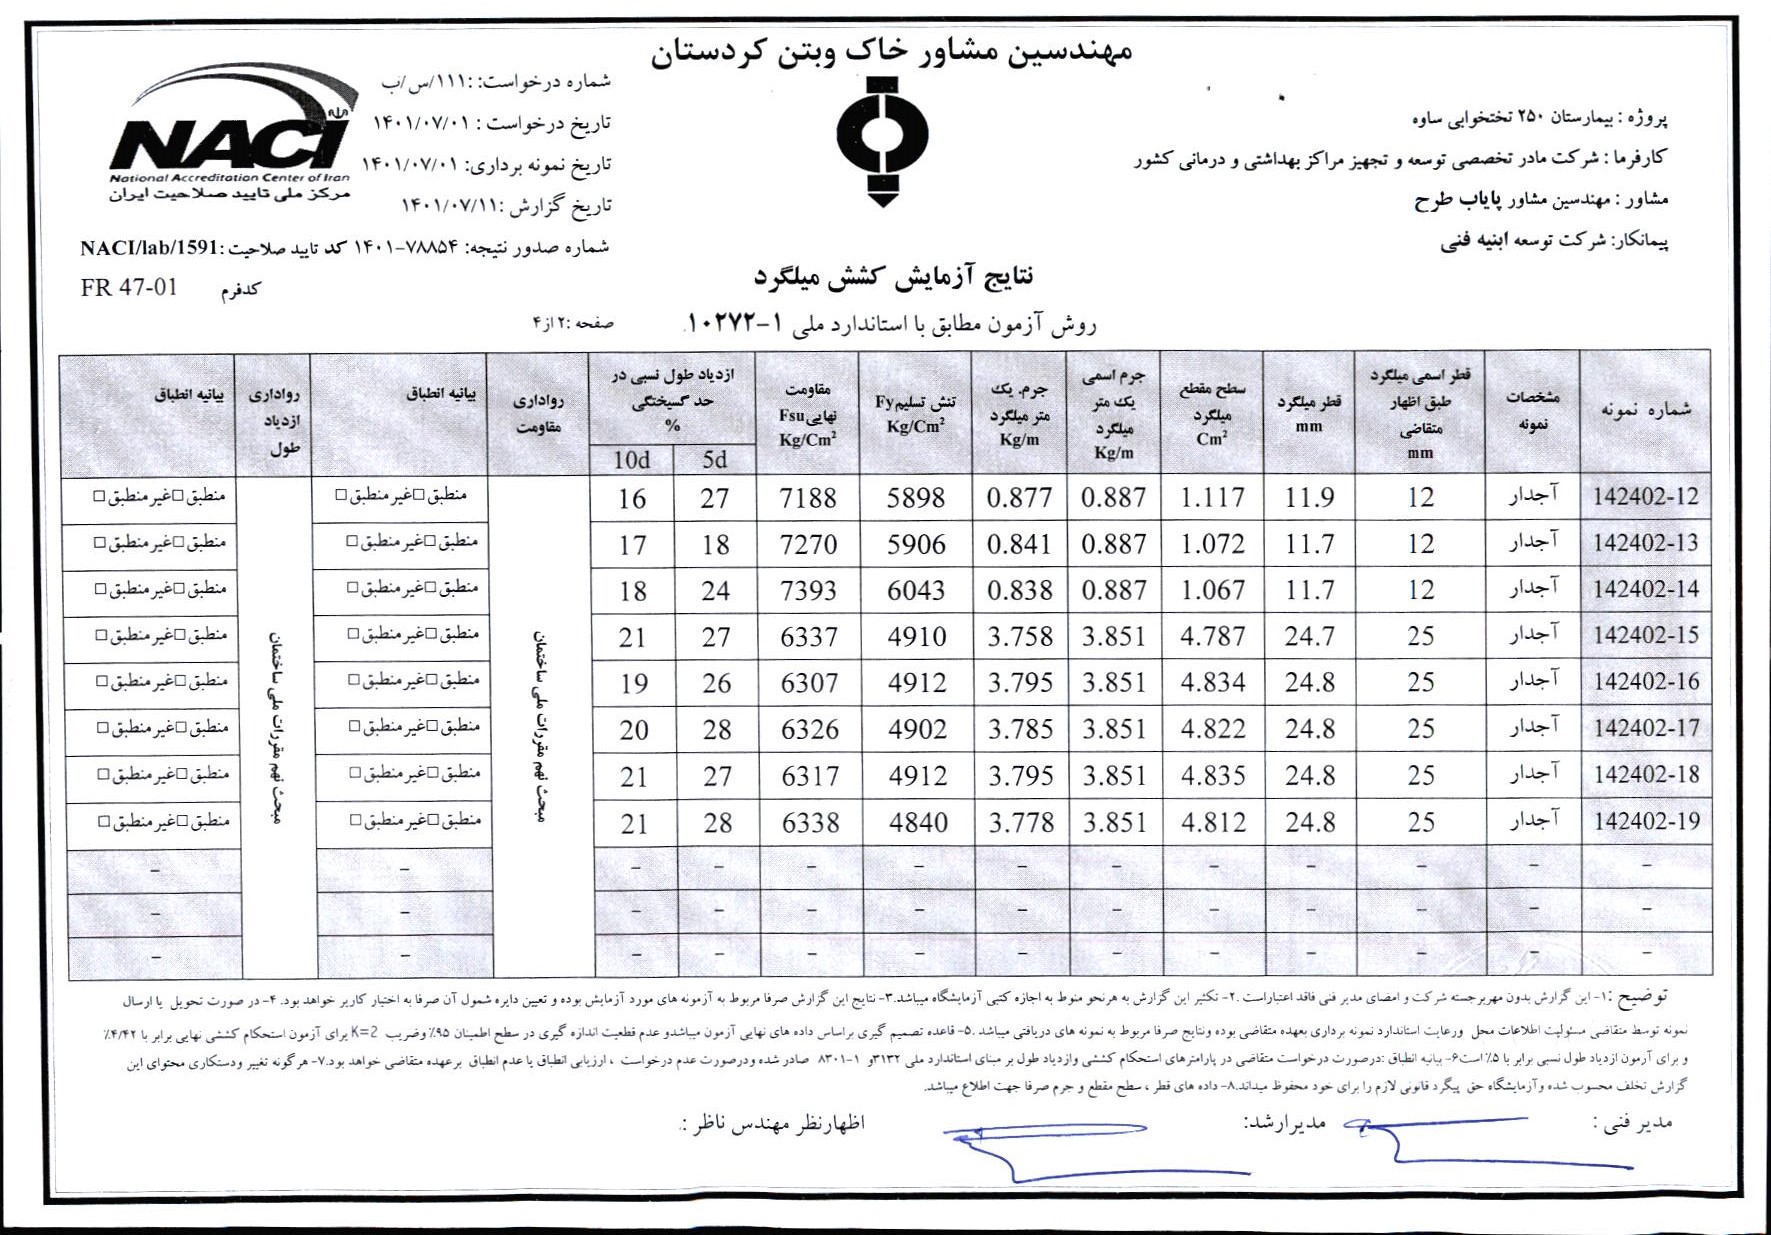 مهندسین مشاور خاک وبتن کردستان
پروژه : بیمارستان ۲۵۰ تختخوابی ساوه
کارفرما : شرکت مادر تخصصی توسعه و تجهیز مراکز بهداشتی و درمانی کشور
مشاور : مهندسین مشاور پایاب طرح
پیمانکار: شرکت توسعه ابنیه فنی
شماره درخواست: :۱۱۱/س/ب
تاریخ درخواست : ۱۴۰۱/۰۷/۰۱
تاریخ نمونه برداری: ۱۴۰۱/۰۷/۰۱
تاریخ گزارش :۱۴۰۱/۰۷/۱۱
شماره صدور نتیجه: ۷۸۸۵۴-۱۴۰۱ کد تایید صلاحیت :NACI/lab/1591
کدفرم FR 47-01
NACI
National Accreditation Center of Iran
مرکز ملی تایید صلاحیت ایران
نتایج آزمایش کشش میلگرد
روش آزمون مطابق با استاندارد ملی ۱-۱۰۲۷۲
صفحه :۲ از۴
شماره نمونه | مشخصات نمونه | قطر اسمی میلگرد طبق اظهار متقاضی mm | قطر میلگرد mm | سطح مقطع میلگرد Cm² | جرم اسمی یک متر میلگرد Kg/m | جرم. یک متر میلگرد Kg/m | تنش تسلیم Fy Kg/Cm² | مقاومت نهایی Fsu Kg/Cm² | ازدیاد طول نسبی در حد گسیختگی % 5d 10d | رواداری مقاومت | بیانیه انطباق | رواداری ازدیاد طول | بیانیه انطباق
142402-12 آجدار 12 11.9 1.117 0.887 0.877 5898 7188 27 16 منطبق□غیرمنطبق□ منطبق□غیرمنطبق□
142402-13 آجدار 12 11.7 1.072 0.887 0.841 5906 7270 18 17 منطبق□غیرمنطبق□ منطبق□غیرمنطبق□
142402-14 آجدار 12 11.7 1.067 0.887 0.838 6043 7393 24 18 منطبق□غیرمنطبق□ منطبق□غیرمنطبق□
142402-15 آجدار 25 24.7 4.787 3.851 3.758 4910 6337 27 21 منطبق□غیرمنطبق□ منطبق□غیرمنطبق□
142402-16 آجدار 25 24.8 4.834 3.851 3.795 4912 6307 26 19 منطبق□غیرمنطبق□ منطبق□غیرمنطبق□
142402-17 آجدار 25 24.8 4.822 3.851 3.785 4902 6326 28 20 منطبق□غیرمنطبق□ منطبق□غیرمنطبق□
142402-18 آجدار 25 24.8 4.835 3.851 3.795 4912 6317 27 21 منطبق□غیرمنطبق□ منطبق□غیرمنطبق□
142402-19 آجدار 25 24.8 4.812 3.851 3.778 4840 6338 28 21 منطبق□غیرمنطبق□ منطبق□غیرمنطبق□
مبحث نهم مقررات ملی ساختمان
مبحث نهم مقررات ملی ساختمان
– – – – – – – – – – – – –
– – – – – – – – – – – – –
– – – – – – – – – – – – –
توضیح :۱- این گزارش بدون مهربرجسته شرکت و امضای مدیر فنی فاقد اعتباراست .۲- تکثیر این گزارش به هرنحو منوط به اجازه کتبی آزمایشگاه میباشد.۳- نتایج این گزارش صرفا مربوط به آزمونه های مورد آزمایش بوده و تعیین دایره شمول آن صرفا به اختیار کاربر خواهد بود. ۴- در صورت تحویل یا ارسال
نمونه توسط متقاضی مسئولیت اطلاعات محل ورعایت استاندارد نمونه برداری بعهده متقاضی بوده ونتایج صرفا مربوط به نمونه های دریافتی میباشد .۵- قاعده تصمیم گیری براساس داده های نهایی آزمون میباشدو عدم قطعیت اندازه گیری در سطح اطمینان ۹۵٪ وضریب K=2 برای آزمون استحکام کششی نهایی برابر با ۴/۴۲٪
و برای آزمون ازدیاد طول نسبی برابر با ۵٪ است۶- بیانیه انطباق :درصورت درخواست متقاضی در پارامترهای استحکام کششی وازدیاد طول بر مبنای استاندارد ملی ۳۱۳۲و ۱-۸۳۰۱ صادر شده ودرصورت عدم درخواست ، ارزیابی انطباق یا عدم انطباق برعهده متقاضی خواهد بود.۷- هرگونه تغییر ودستکاری محتوای این
گزارش تخلف محسوب شده وآزمایشگاه حق پیگرد قانونی لازم را برای خود محفوظ میداند.۸- داده های قطر ، سطح مقطع و جرم صرفا جهت اطلاع میباشد.
مدیر فنی : مدیرارشد: اظهارنظر مهندس ناظر :